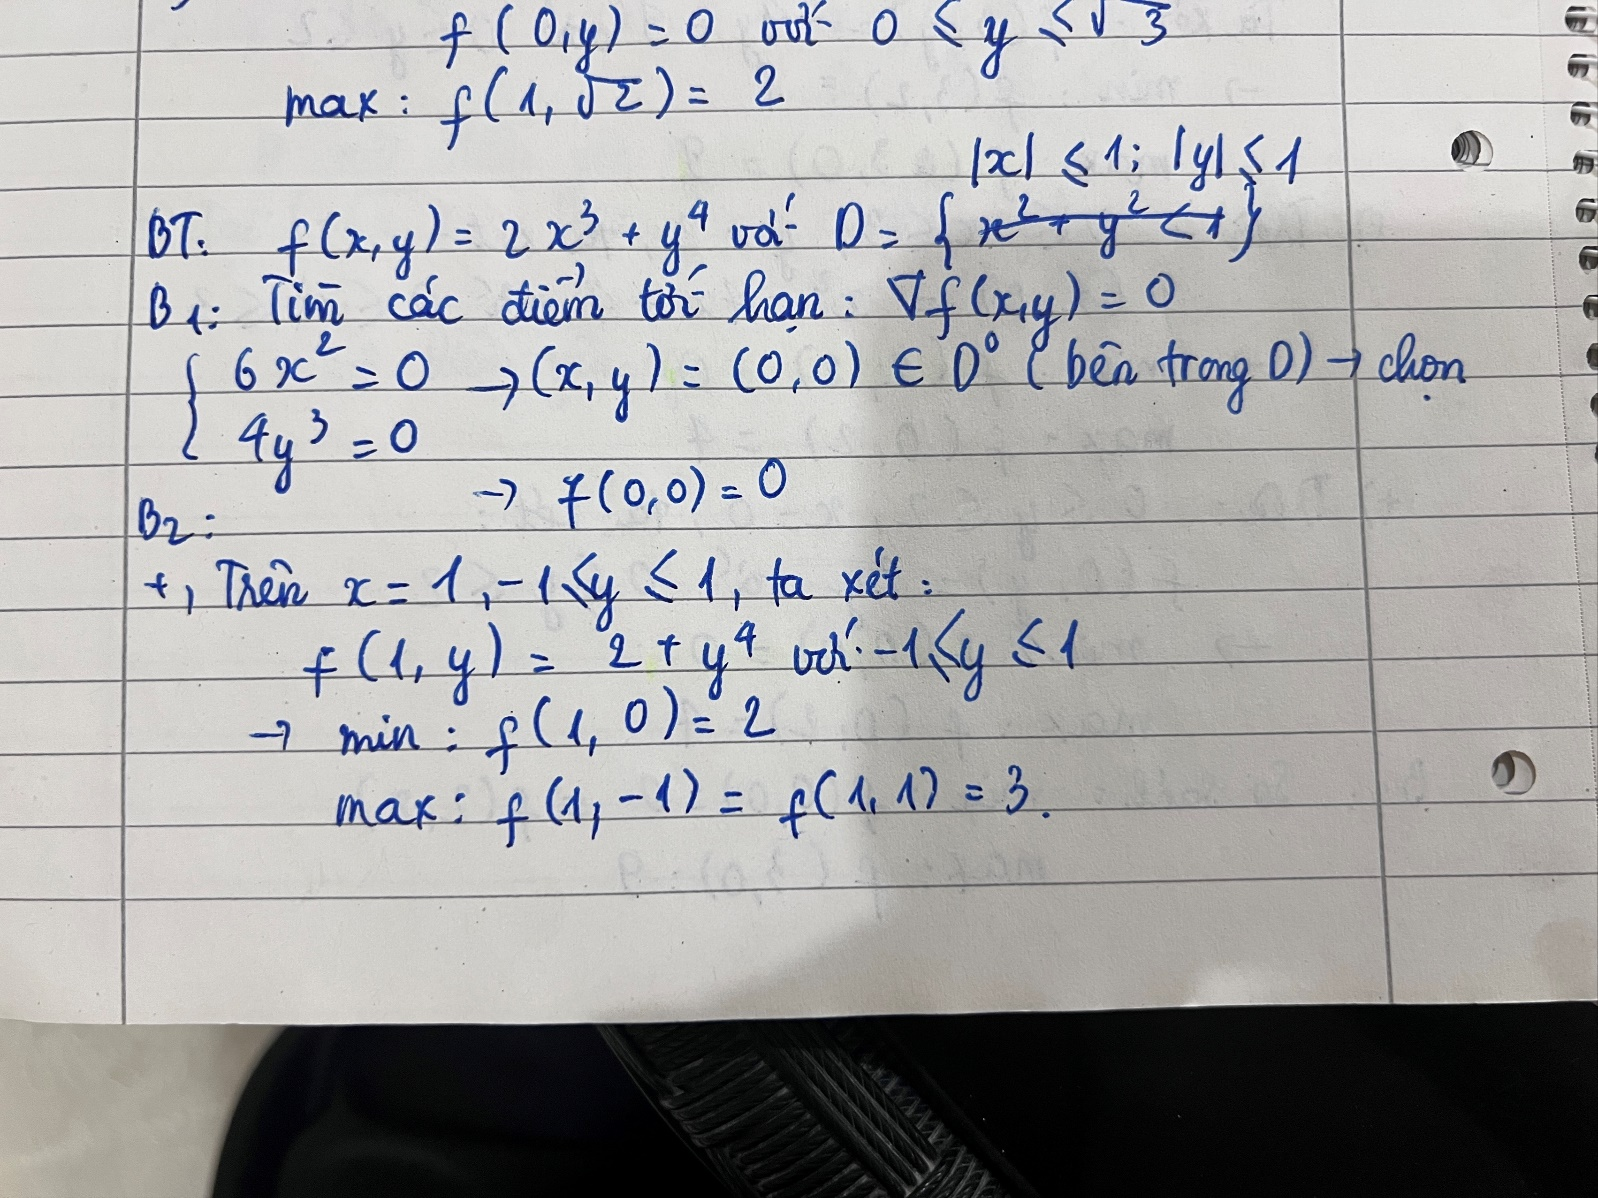 f(0,y) = 0 với 0 ≤ y ≤ √3
max: f(1,√2) = 2
|x| ≤ 1; |y| ≤ 1
BT: f(x,y) = 2x³ + y⁴ với D = { x² + y² < 1 }
B1: Tìm các điểm tới hạn: ∇f(x,y) = 0
{ 6x² = 0 → (x,y) = (0,0) ∈ D⁰ (bên trong D) → chọn
4y³ = 0
→ f(0,0) = 0
B2:
+, Trên x = 1, -1 ≤ y ≤ 1, ta xét:
f(1,y) = 2 + y⁴ với -1 ≤ y ≤ 1
→ min: f(1,0) = 2
max: f(1,-1) = f(1,1) = 3.